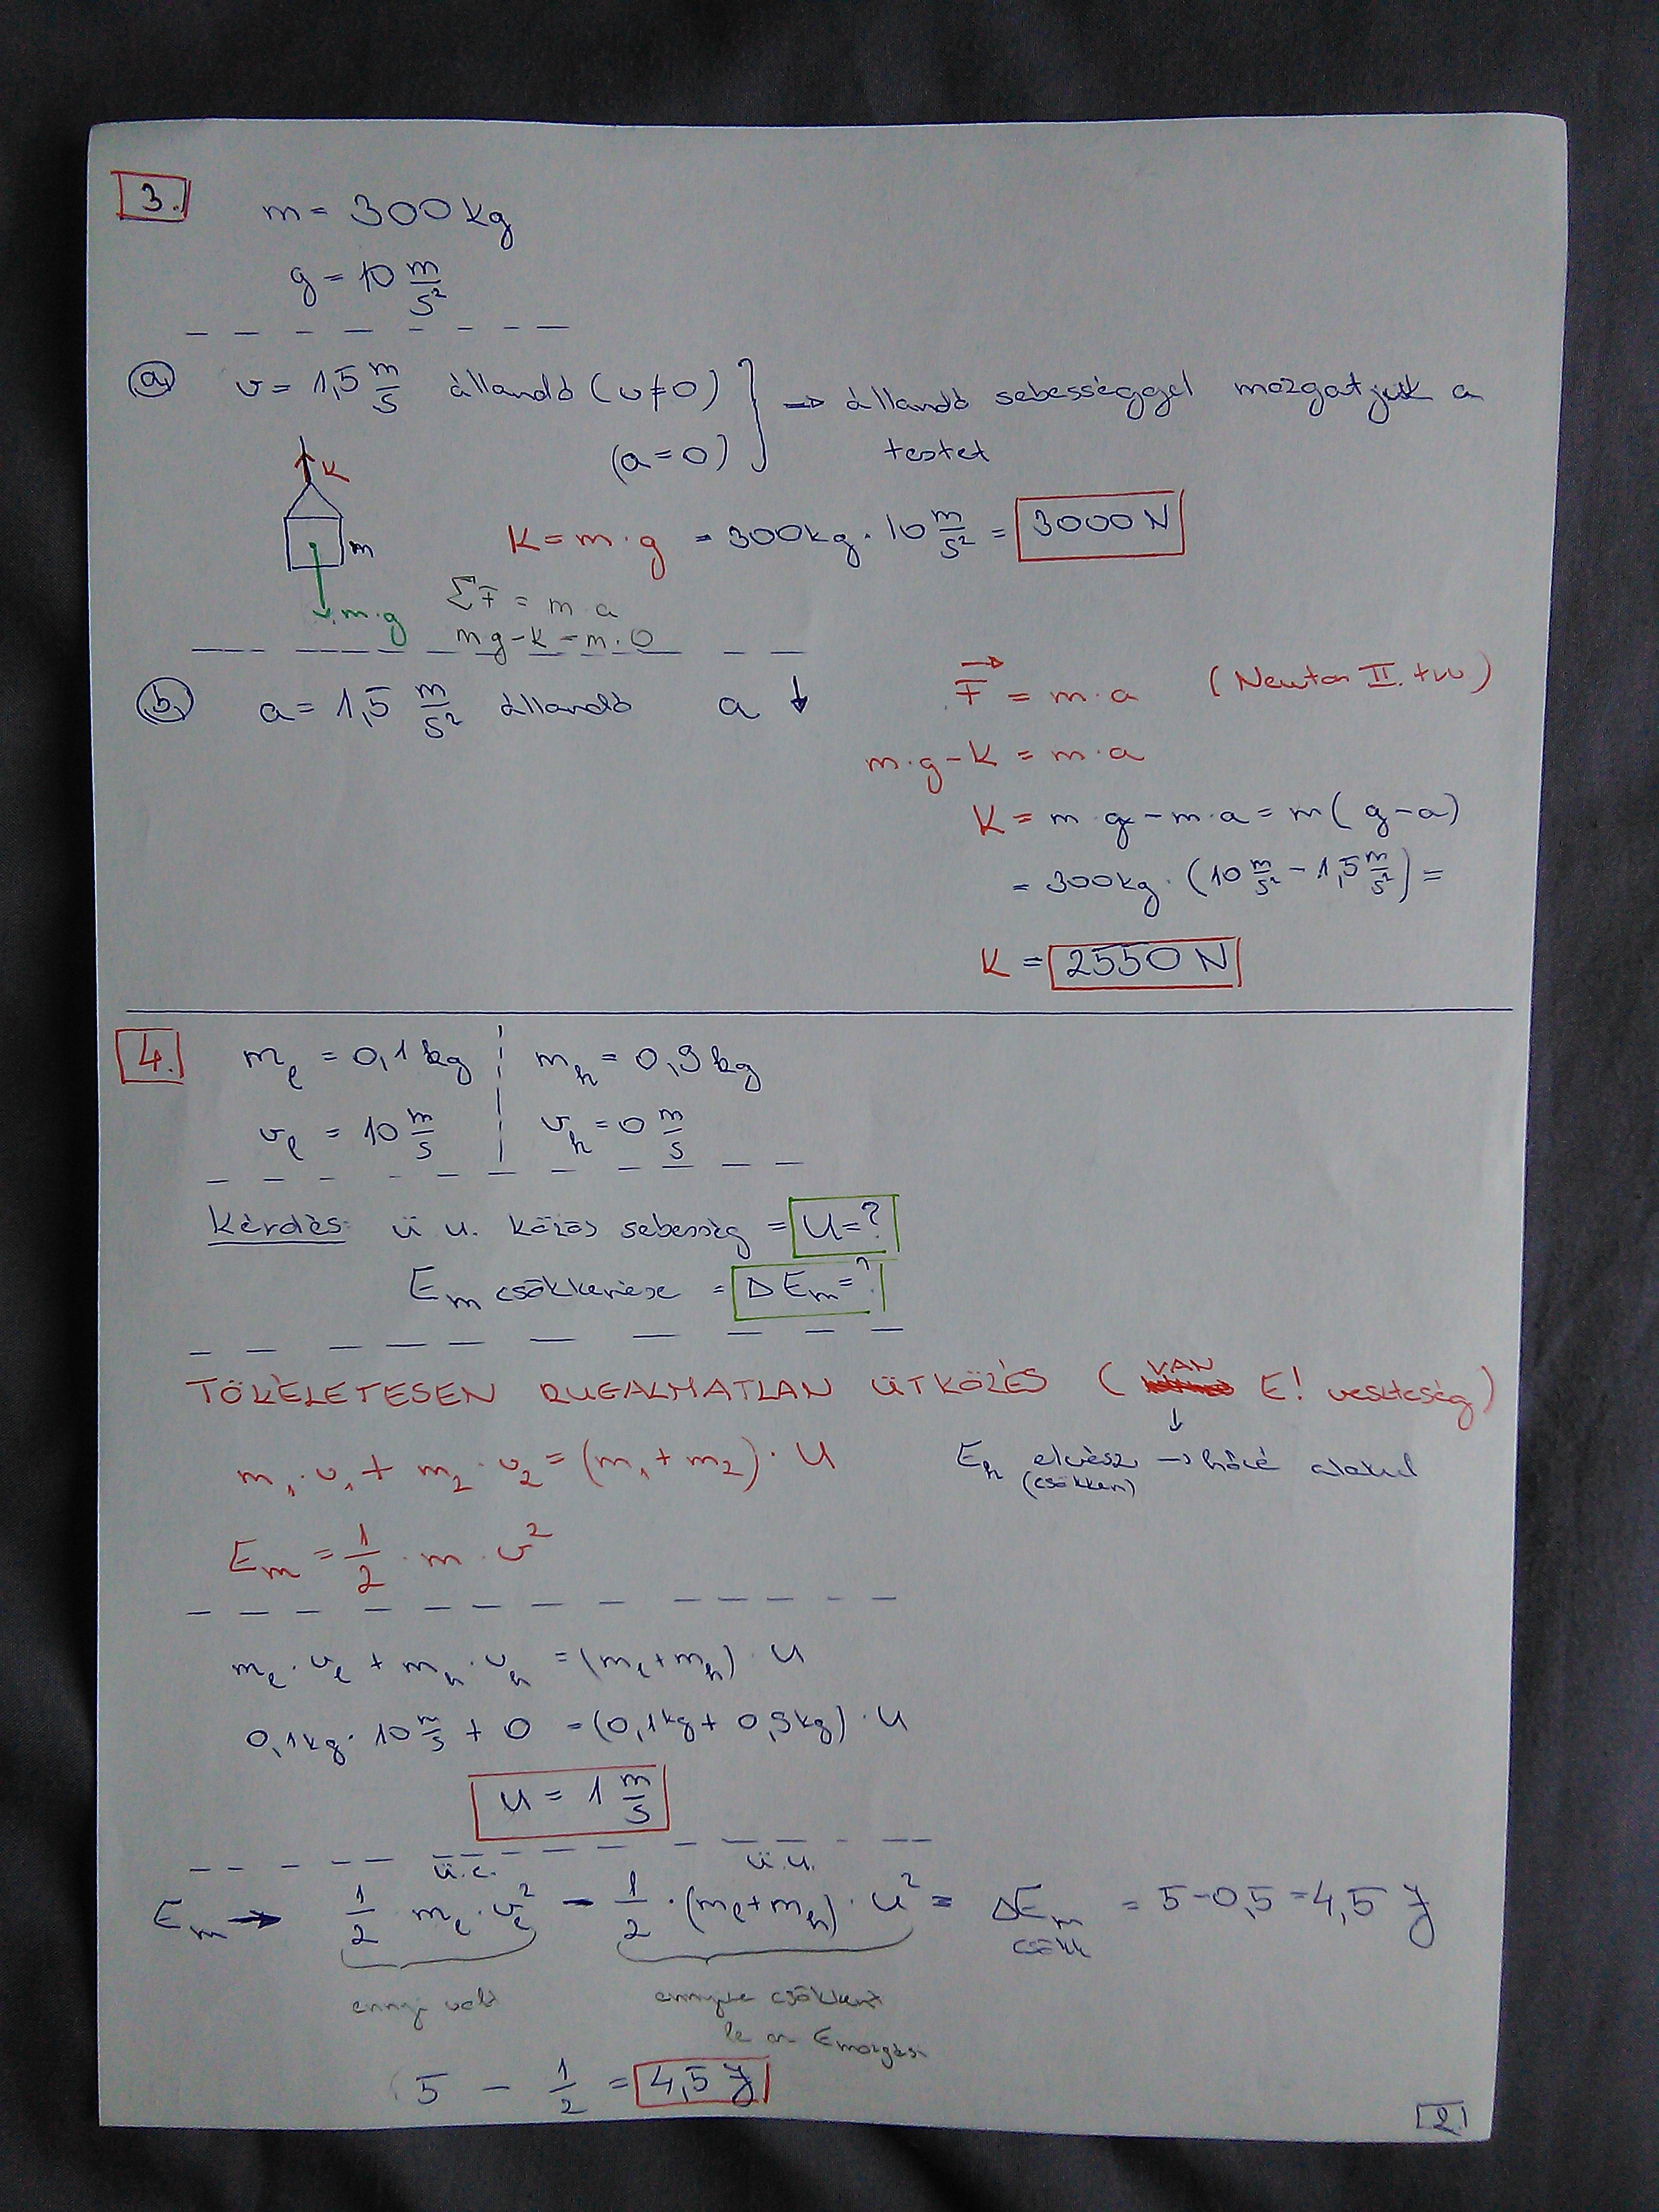 3.
m = 300 kg
g = 10 m/s²
a) v = 1,5 m/s állandó (v≠0)
(a=0)
→ állandó sebességgel mozgatjuk a
testet
K
m
m·g
K = m·g = 300kg · 10 m/s² = 3000 N
ΣF = m a
mg - K = m·0
b) a = 1,5 m/s² állandó a ↓
F = m·a (Newton II. tvv)
m·g - K = m·a
K = m g - m·a = m(g-a)
= 300kg · (10 m/s² - 1,5 m/s²) =
K = 2550 N
4.
mℓ = 0,1 kg mh = 0,9 kg
vℓ = 10 m/s vh = 0 m/s
Kérdés: ü u. közös sebesség = U=?
Em csökkenése = ΔEm=?
TÖKÉLETESEN RUGALMATLAN ÜTKÖZÉS (VAN E! veszteség)
↓
m₁·v₁ + m₂·v₂ = (m₁+m₂)·U
Eh elvész → hővé alakul
(csökken)
Em = 1/2 · m · v²
mℓ·vℓ + mh·vh = (mℓ+mh) · U
0,1kg · 10 m/s + 0 = (0,1kg + 0,9kg) · U
U = 1 m/s
ü.e. ü.u.
Em → 1/2 mℓ·vℓ² - 1/2 · (mℓ+mh) · U² = ΔEm = 5-0,5 = 4,5 J
csökk
ennyi volt
ennyire csökkent
le az Emozgási
5 - 1/2 = 4,5 J
2